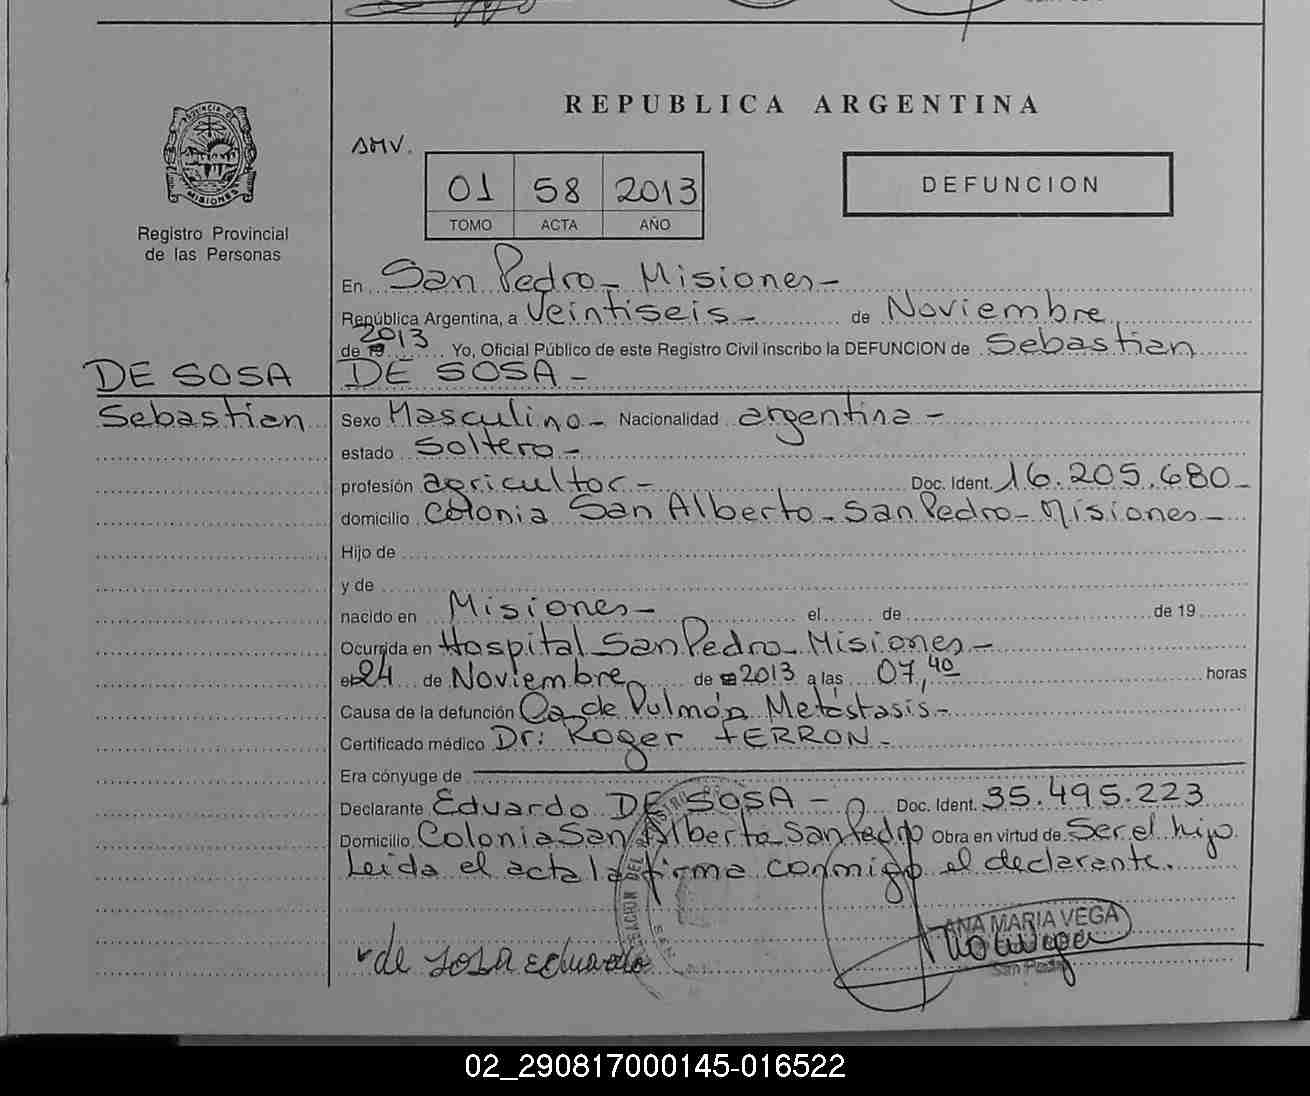 REPUBLICA ARGENTINA
AMV.
PROVINCIA D
MISIONES
Registro Provincial
de las Personas
01 58 2013
TOMO ACTA AÑO
DEFUNCION
En San Pedro - Misiones -
República Argentina, a Veintiseis - de Noviembre
de 19 2013 Yo, Oficial Público de este Registro Civil inscribo la DEFUNCION de Sebastian
DE SOSA -
DE SOSA
Sebastian
Sexo Masculino - Nacionalidad argentina -
estado Soltero -
profesión agricultor - Doc. Ident. 16.205.680 -
domicilio Colonia San Alberto - San Pedro - Misiones -
Hijo de
y de
nacido en Misiones - el de de 19
Ocurrida en Hospital San Pedro - Misiones -
el 24 de Noviembre de 2013 a las 07,40 horas
Causa de la defunción Ca de Pulmón Metástasis -
Certificado médico Dr: Roger FERRON -
Era cónyuge de
Declarante Eduardo DE SOSA - Doc. Ident. 35.495.223
Domicilio Colonia San Alberto San Pedro Obra en virtud de Ser el hijo
Leida el acta la firma conmigo el declarante.
de sosa Eduardo
ANA MARIA VEGA
San Pedro
02_290817000145-016522